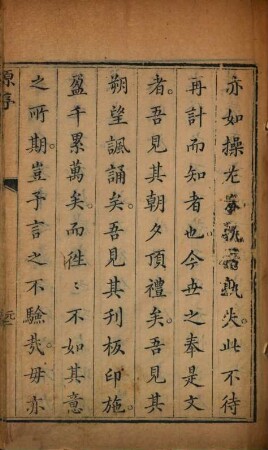 亦如操左
失此不待
再計而知者也今世之奉是文
者吾見其朝夕頂禮矣吾見其
朔望諷誦矣吾見其刋板印施
盈千累萬矣而徃〻不如其意
之所期豈予言之不驗哉毋亦
原序